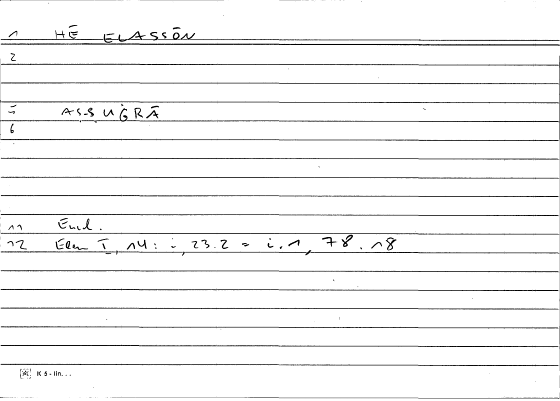 1 HĒ ELASSŌN
2
5 ASSUĠRĀ
6
11 Eucl.
12 Elem I, 14: i, 23.2 = i.1, 78.18
K 5 - lin...